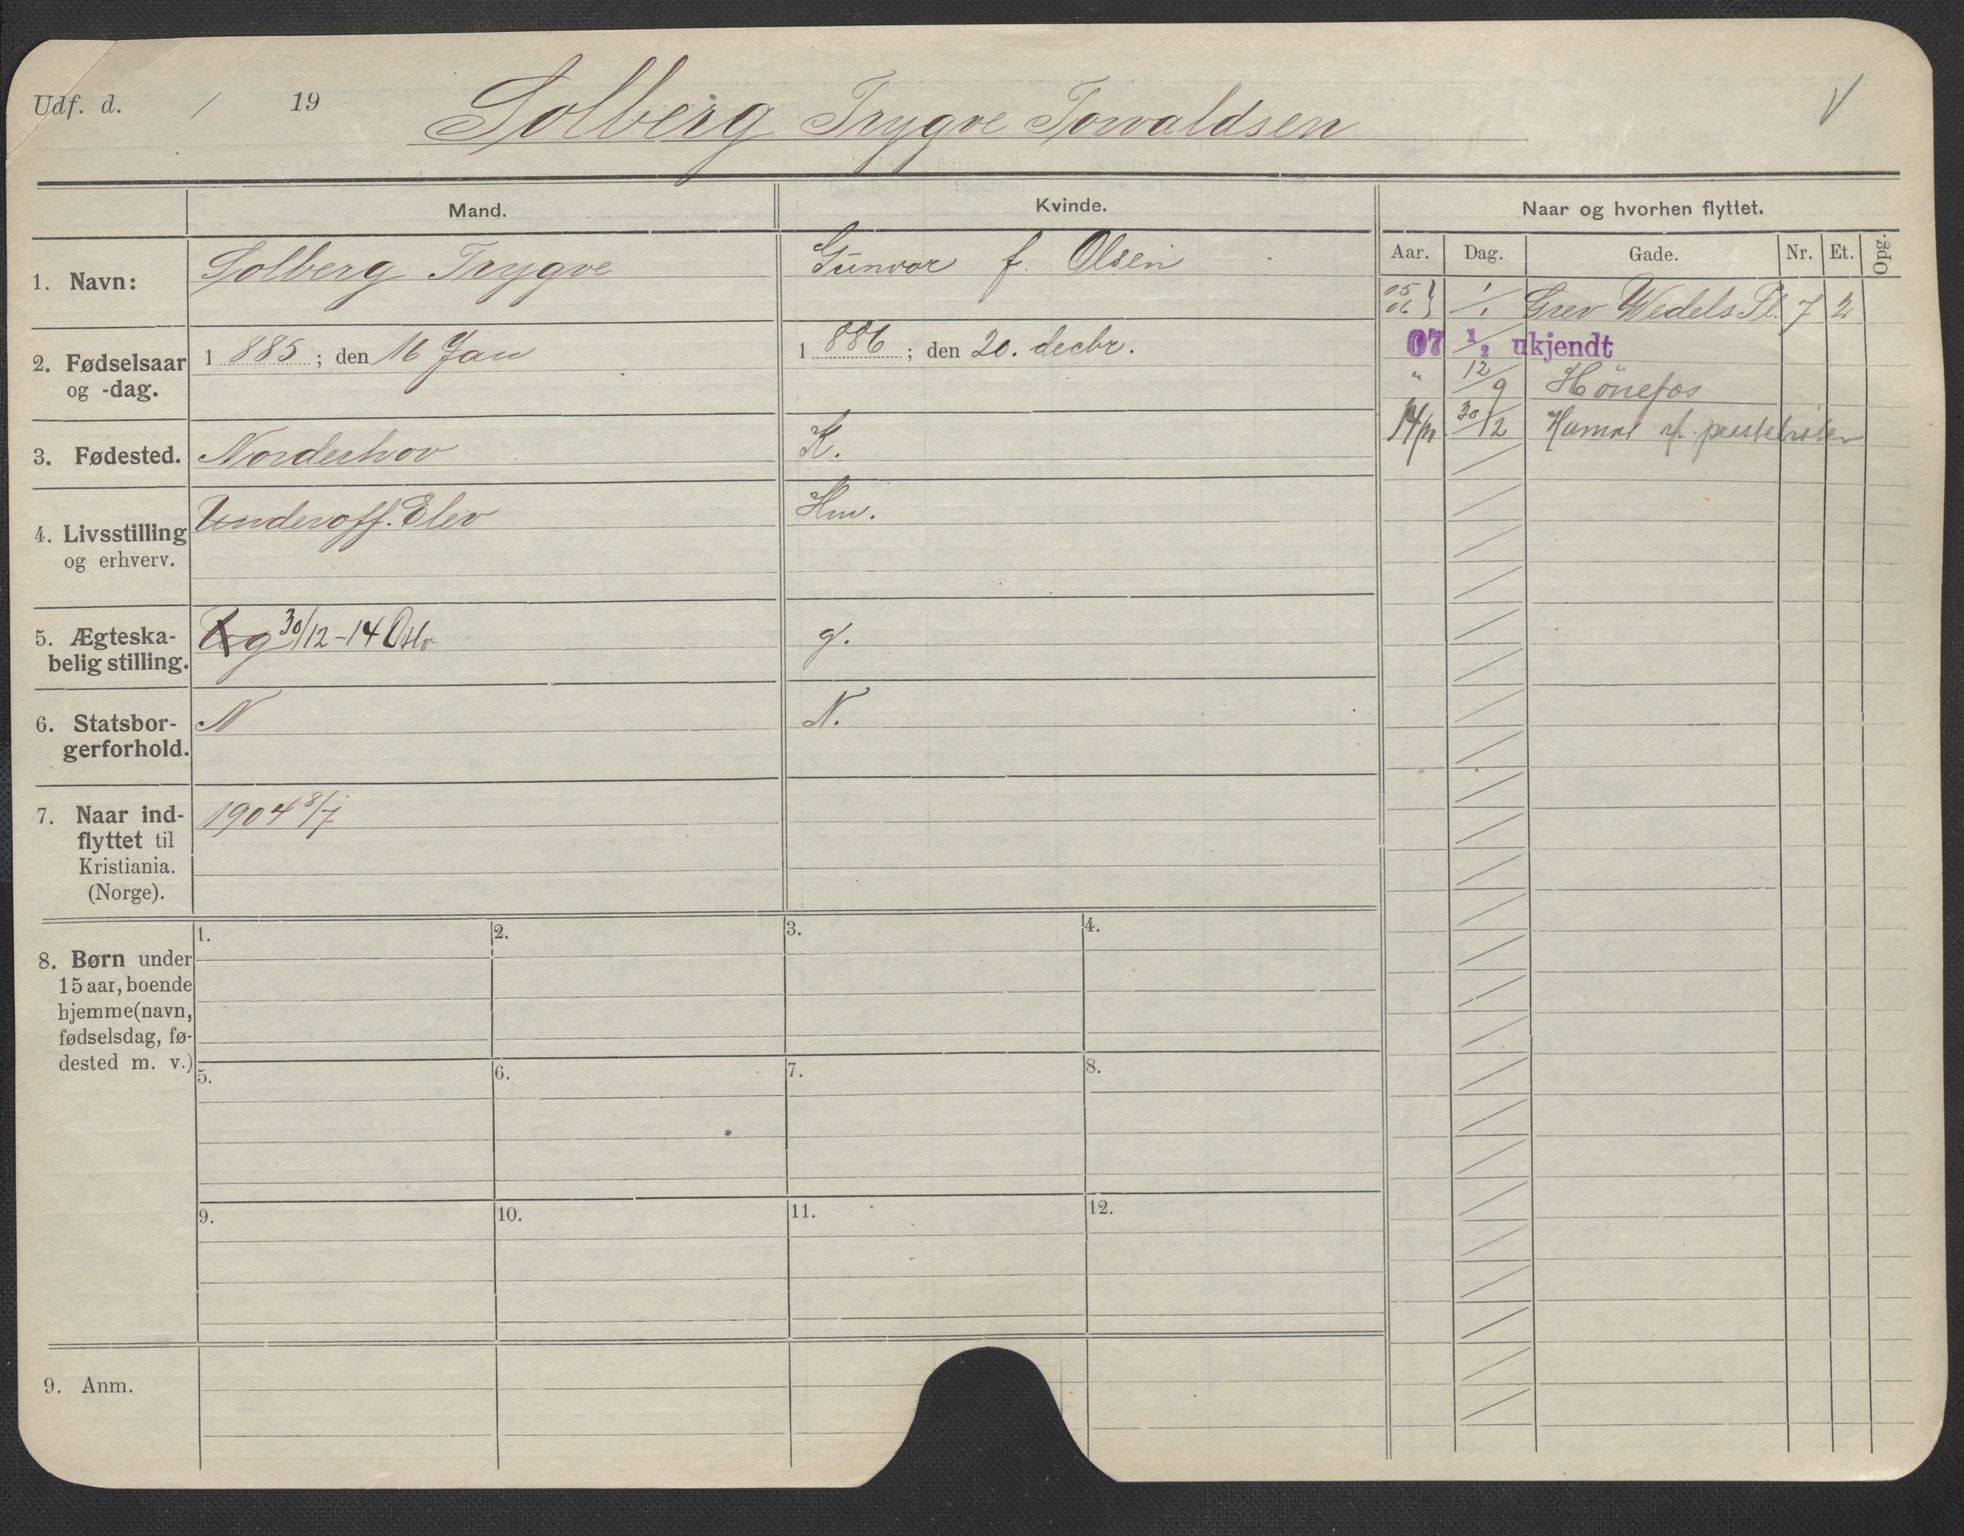 Udf. d. / 19 Solberg Trygve Torvaldsen
Mand. Kvinde. Naar og hvorhen flyttet.
Aar. Dag. Gade. Nr. Et. Opg.
1. Navn: Solberg Trygve Gunvor f. Olsen
05 06 } 1/1 Grev Wedels Pl. 7 2
07 1/2 ukjendt
2. Fødselsaar og -dag. 1 885 ; den 16 Jan 1 886 ; den 20. decbr.
" 12/9 Hønefos
14 30/12 Hamar
3. Fødested. Norderhov K.
4. Livsstilling og erhverv. Underoff. Elev Hm.
5. Ægteska-
belig stilling. g 30/12-14 Oslo g.
6. Statsbor-
gerforhold. N N.
7. Naar ind-
flyttet til
Kristiania.
(Norge). 1904 8/7
8. Børn under
15 aar, boende
hjemme (navn,
fødselsdag, fø-
dested m. v.)
1. 2. 3. 4.
5. 6. 7. 8.
9. 10. 11. 12.
9. Anm.